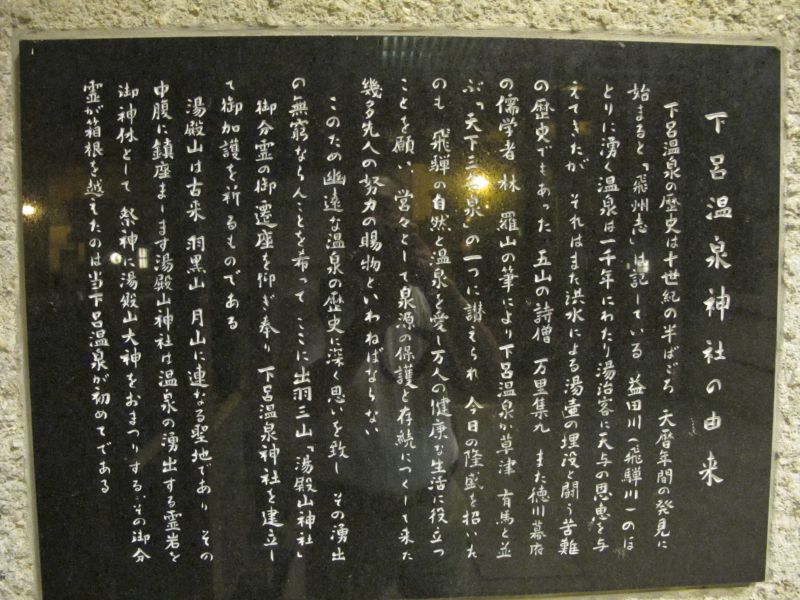 下呂温泉神社の由来
下呂温泉の歴史は十世紀の半ばごろ 天暦年間の発見に
始まると「飛州志」は記している 益田川(飛騨川)のほ
とりに湧く温泉は一千年にわたり湯治客に天与の恩恵を与
えてきたが それはまた洪水による湯壷の埋没と闘う苦難
の歴史でもあった 五山の詩僧 万里集九 また徳川幕府
の儒学者 林 羅山の筆により下呂温泉が草津 有馬と並
ぶ「天下三名泉」の一つに讃えられ 今日の隆盛を招いた
のも 飛騨の自然と温泉を愛し万人の健康な生活に役立つ
ことを願い、営々として泉源の保護と存続につくして来た
幾多先人の努力の賜物といわねばならない
このため幽遠な温泉の歴史に深く思いを致し その湧出
の無窮ならんことを希って ここに出羽三山「湯殿山神社」
御分霊の御遷座を仰ぎ奉り 下呂温泉神社を建立し
て御加護を祈るものである
湯殿山は古来 羽黒山 月山に連なる聖地であり その
中腹に鎮座まします湯殿山神社は温泉の湧出する霊岩を
御神体として 祭神に湯殿山大神をおまつりする、その御分
霊が箱根を越えたのは当下呂温泉が初めてである